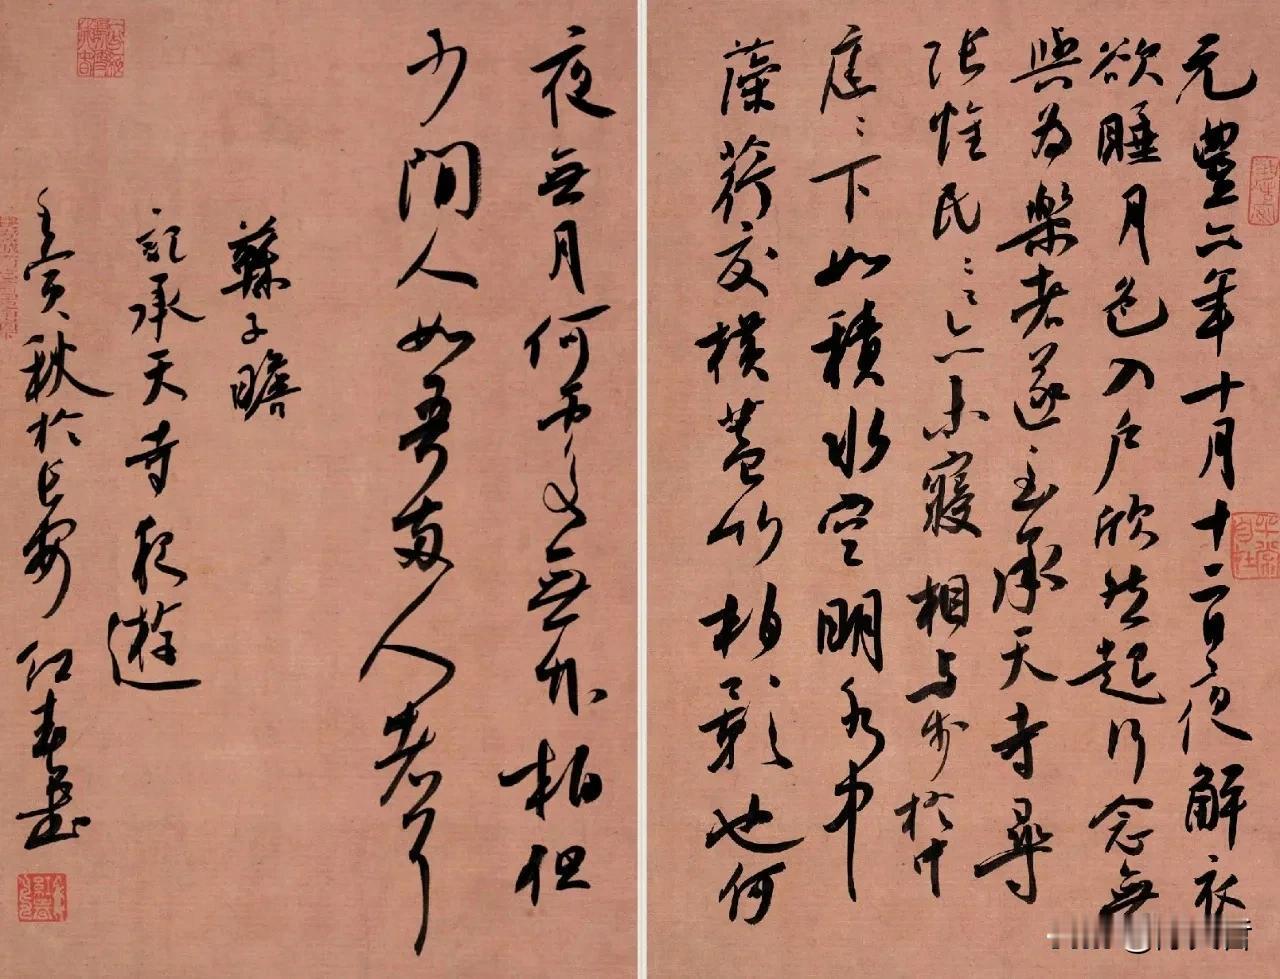 元豐六年十月十二日夜解衣
欲睡月色入戶欣然起行念無
與為樂者遂至承天寺尋
張懷民〻〻亦未寢相與步於中
庭〻下如積水空明水中
藻荇交橫蓋竹柏影也何
夜無月何處無竹柏但
少閒人如吾兩人者耳
蘇子瞻
記承天寺夜遊
壬寅秋於長安 紅春